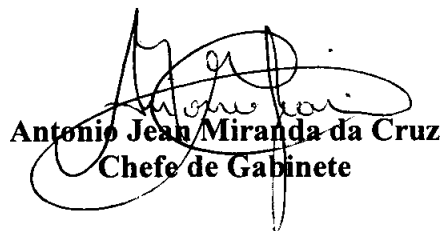 Antonio Jean Miranda da Cruz
Chefe de Gabinete